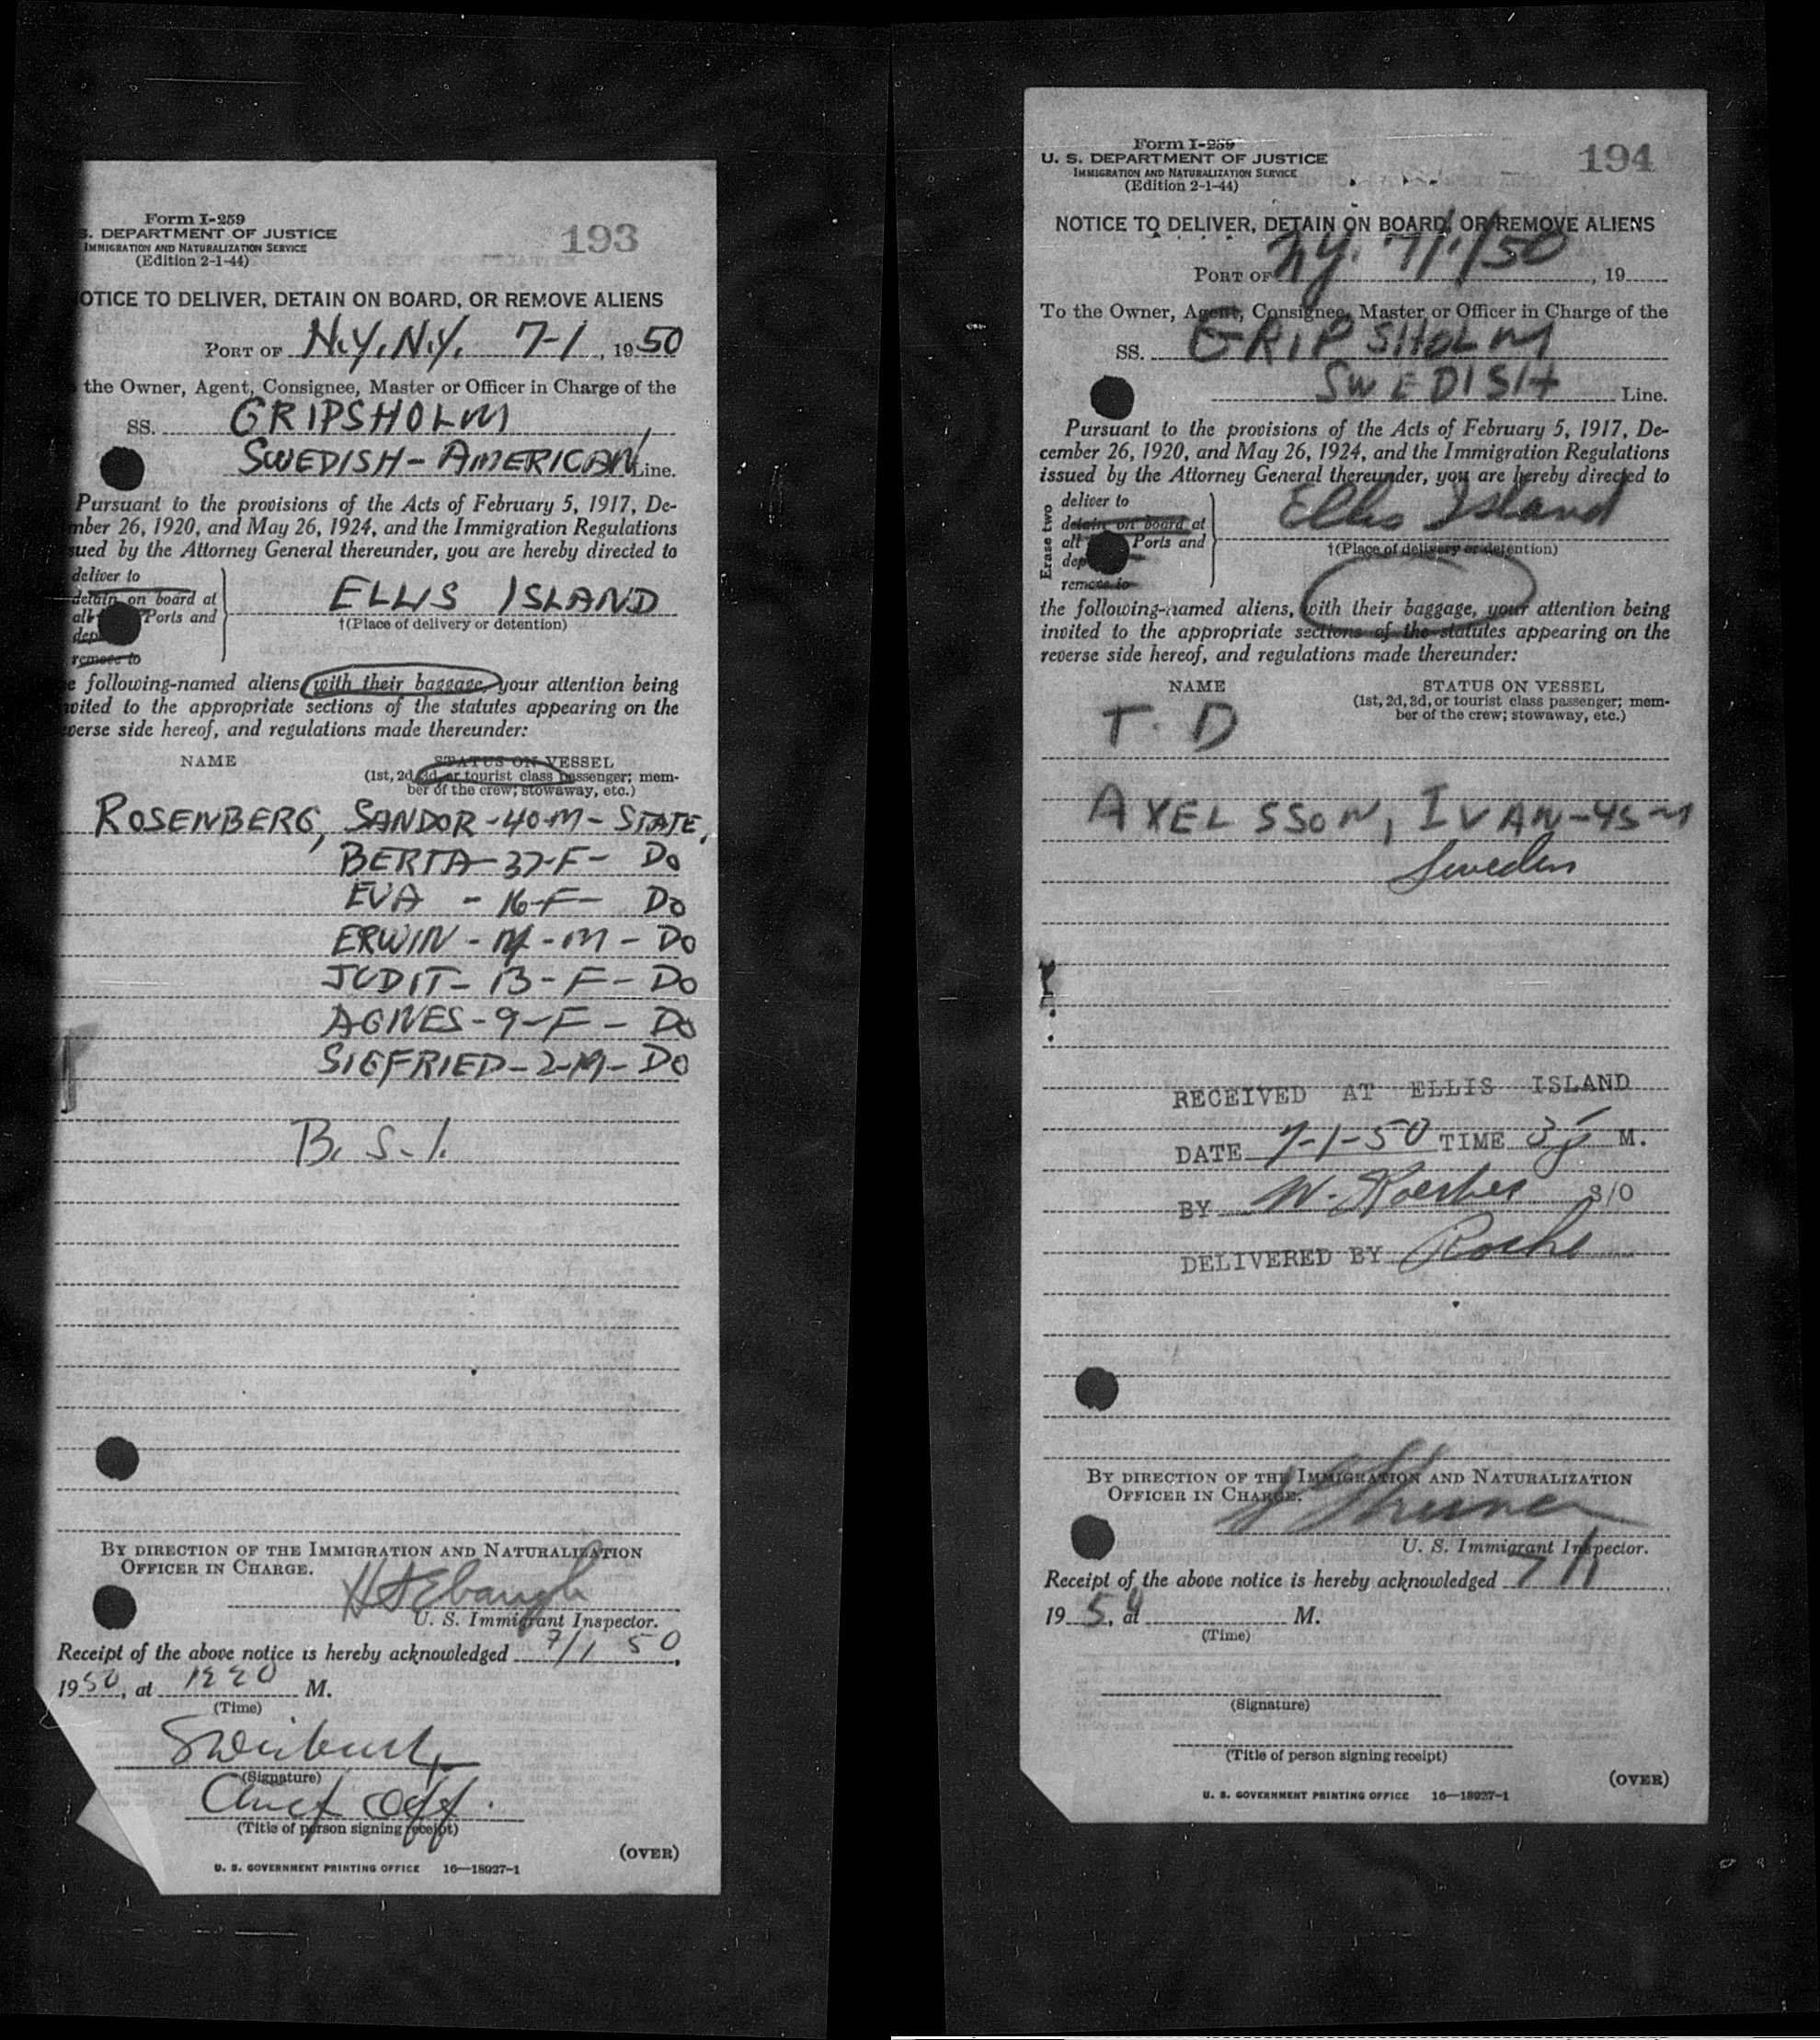 Form I-259
S. DEPARTMENT OF JUSTICE
IMMIGRATION AND NATURALIZATION SERVICE
(Edition 2-1-44)
193
OTICE TO DELIVER, DETAIN ON BOARD, OR REMOVE ALIENS
PORT OF N.Y.N.Y. 7-1, 1950
the Owner, Agent, Consignee, Master or Officer in Charge of the
SS. GRIPSHOLM
SWEDISH-AMERICAN Line.
Pursuant to the provisions of the Acts of February 5, 1917, De-
mber 26, 1920, and May 26, 1924, and the Immigration Regulations
sued by the Attorney General thereunder, you are hereby directed to
deliver to
detain on board at
all Ports and
dep
remove to
ELLIS ISLAND
†(Place of delivery or detention)
e following-named aliens, with their baggage, your attention being
vited to the appropriate sections of the statutes appearing on the
verse side hereof, and regulations made thereunder:
NAME
STATUS ON VESSEL
(1st, 2d, 3d, or tourist class passenger; mem-
ber of the crew; stowaway, etc.)
ROSENBERG, SANDOR-40-M-STATE,
BERTA-37-F- Do
EVA - 16-F- Do
ERWIN - 14-M - Do
JUDIT- 13-F- Do
AGNES-9-F- Do
SIEGFRIED-2-M-Do
B. S. I.
BY DIRECTION OF THE IMMIGRATION AND NATURALIZATION
OFFICER IN CHARGE.
U. S. Immigrant Inspector.
Receipt of the above notice is hereby acknowledged 7/1 50,
1950, at 1220 M.
(Time)
(Signature)
Chief Off.
(Title of person signing receipt)
(OVER)
U. S. GOVERNMENT PRINTING OFFICE 16—18927-1
Form I-259
U. S. DEPARTMENT OF JUSTICE
IMMIGRATION AND NATURALIZATION SERVICE
(Edition 2-1-44)
194
NOTICE TO DELIVER, DETAIN ON BOARD, OR REMOVE ALIENS
PORT OF N.Y. 7/1/50, 19
To the Owner, Agent, Consignee, Master or Officer in Charge of the
SS. GRIPSHOLM
SWEDISH Line.
Pursuant to the provisions of the Acts of February 5, 1917, De-
cember 26, 1920, and May 26, 1924, and the Immigration Regulations
issued by the Attorney General thereunder, you are hereby directed to
Erase two
deliver to
detain on board at
all Ports and
dep
remove to
Ellis Island
†(Place of delivery or detention)
the following-named aliens, with their baggage, your attention being
invited to the appropriate sections of the statutes appearing on the
reverse side hereof, and regulations made thereunder:
NAME
STATUS ON VESSEL
(1st, 2d, 3d, or tourist class passenger; mem-
ber of the crew; stowaway, etc.)
T. D
AXELSSON, IVAN-45-M
Sweden
RECEIVED AT ELLIS ISLAND
DATE 7-1-50 TIME M.
BY W. S/O
DELIVERED BY Roche
BY DIRECTION OF THE IMMIGRATION AND NATURALIZATION
OFFICER IN CHARGE.
U. S. Immigrant Inspector.
Receipt of the above notice is hereby acknowledged 7/1
1950, at M.
(Time)
(Signature)
(Title of person signing receipt)
(OVER)
U. S. GOVERNMENT PRINTING OFFICE 16—18927-1